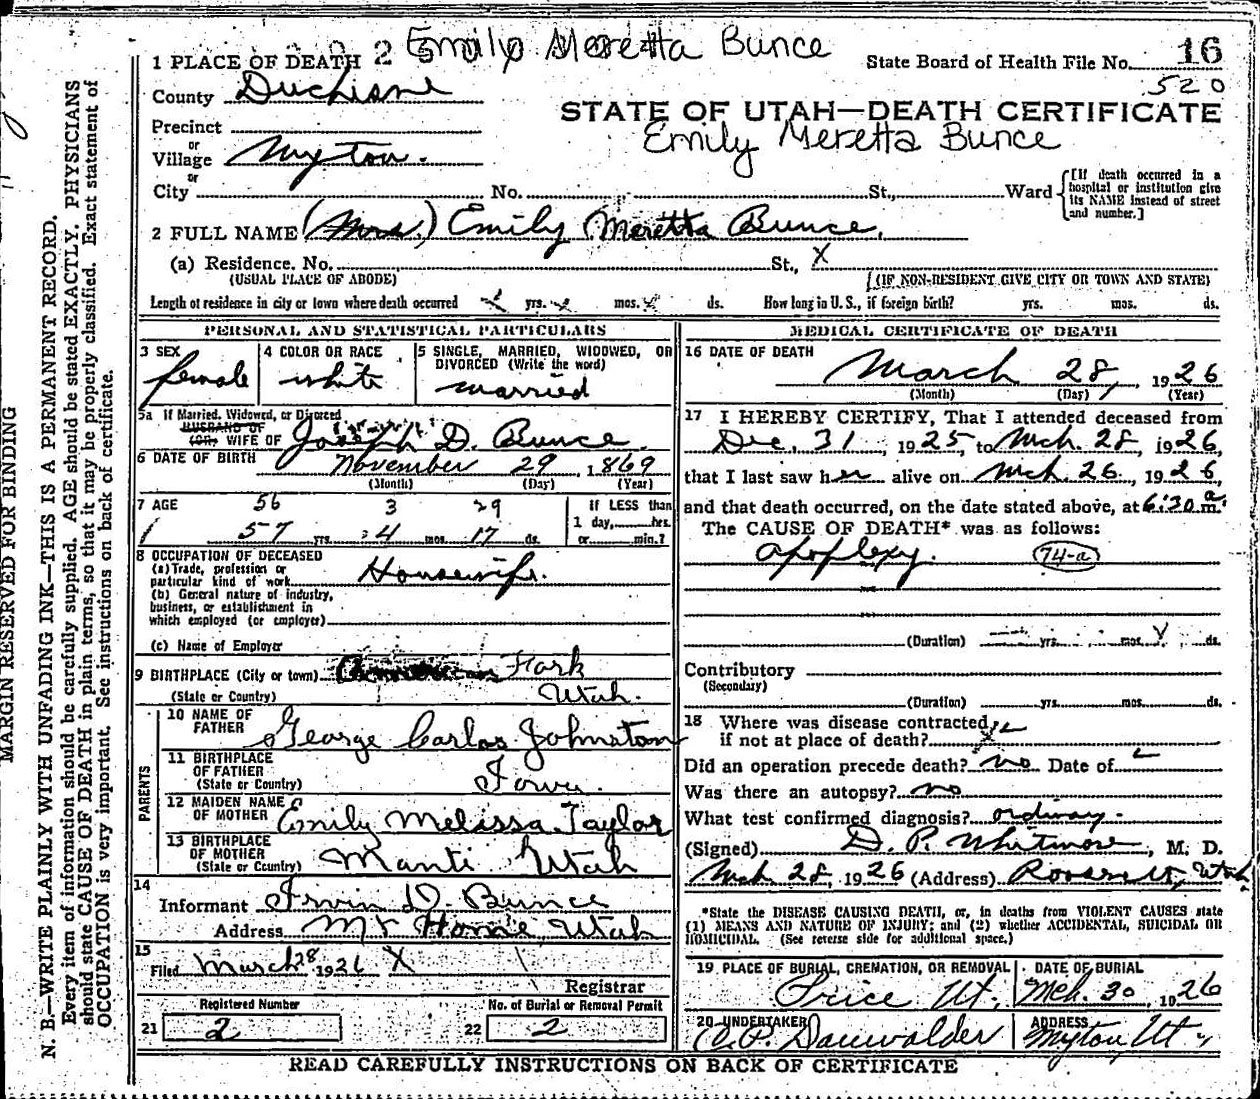 Emily Meretta Bunce
1 PLACE OF DEATH 2
State Board of Health File No. 16
520
County Duchesne
STATE OF UTAH—DEATH CERTIFICATE
Emily Meretta Bunce
Precinct
or
Village Myton.
or
City No. St., Ward
[If death occurred in a hospital or institution give its NAME instead of street and number.]
2 FULL NAME (Mrs.) Emily Meretta Bunce.
(a) Residence. No. St., X
(USUAL PLACE OF ABODE) (IF NON-RESIDENT GIVE CITY OR TOWN AND STATE)
Length of residence in city or town where death occurred yrs. mos. ds. How long in U. S., if foreign birth? yrs. mos. ds.
PERSONAL AND STATISTICAL PARTICULARS
3 SEX female
4 COLOR OR RACE white
5 SINGLE, MARRIED, WIDOWED, OR DIVORCED (Write the word) married
5a If Married, Widowed, or Divorced
HUSBAND OF
(OR) WIFE OF Joseph D. Bunce
6 DATE OF BIRTH November 29, 1869
(Month) (Day) (Year)
7 AGE 56 3 29
57 yrs. 4 mos. 17 ds.
If LESS than
1 day, hrs.
or min.?
8 OCCUPATION OF DECEASED
(a) Trade, profession or
particular kind of work Housewife.
(b) General nature of industry,
business, or establishment in
which employed (or employer)
(c) Name of Employer
9 BIRTHPLACE (City or town) Fork
(State or Country) Utah.
PARENTS
10 NAME OF FATHER George Carlos Johnston
11 BIRTHPLACE OF FATHER
(State or Country) Iowa.
12 MAIDEN NAME OF MOTHER Emily Melissa Taylor
13 BIRTHPLACE OF MOTHER
(State or Country) Manti Utah
14
Informant Irvin D. Bunce
Address Mt Home, Utah
15
Filed March 28 1926 X
Registrar
Registered Number
21 2
No. of Burial or Removal Permit
22 2
MEDICAL CERTIFICATE OF DEATH
16 DATE OF DEATH
March 28, 1926
(Month) (Day) (Year)
17 I HEREBY CERTIFY, That I attended deceased from
Dec. 31, 1925, to Mch. 28, 1926,
that I last saw her alive on Mch. 26, 1926,
and that death occurred, on the date stated above, at 6:30 a m.
The CAUSE OF DEATH* was as follows:
apoplexy. 74-a
(Duration) yrs. mos. ds.
Contributory
(Secondary)
(Duration) yrs. mos. ds.
18 Where was disease contracted
if not at place of death?
Did an operation precede death? no Date of
Was there an autopsy? no
What test confirmed diagnosis?
(Signed) D. P. Whitmore, M. D.
Mch 28, 1926 (Address) Roosevelt, Utah
*State the DISEASE CAUSING DEATH, or, in deaths from VIOLENT CAUSES state
(1) MEANS AND NATURE OF INJURY; and (2) whether ACCIDENTAL, SUICIDAL OR
HOMICIDAL. (See reverse side for additional space.)
19 PLACE OF BURIAL, CREMATION, OR REMOVAL
Price Ut,
DATE OF BURIAL
Mch. 30, 1926
20 UNDERTAKER
Dauwalder
ADDRESS
Myton, Ut
READ CAREFULLY INSTRUCTIONS ON BACK OF CERTIFICATE
MARGIN RESERVED FOR BINDING
N. B.—WRITE PLAINLY WITH UNFADING INK—THIS IS A PERMANENT RECORD.
Every item of information should be carefully supplied. AGE should be stated EXACTLY. PHYSICIANS
should state CAUSE OF DEATH in plain terms, so that it may be properly classified. Exact statement of
OCCUPATION is very important. See instructions on back of certificate.